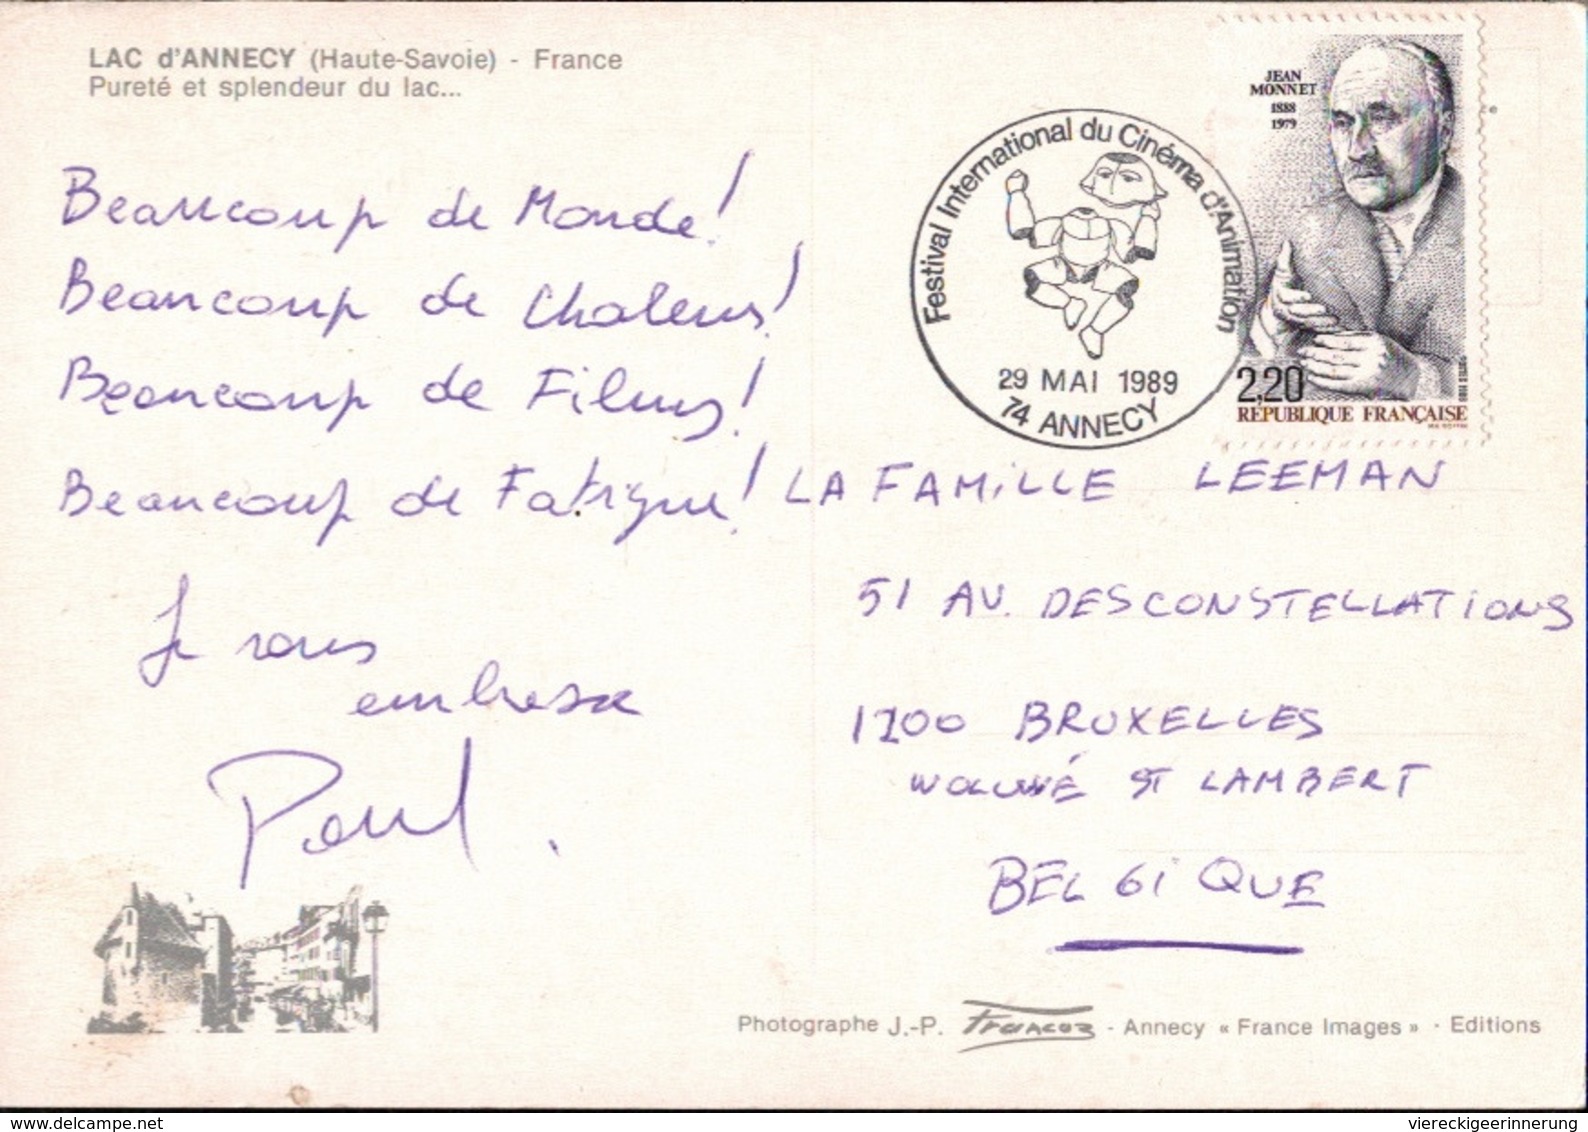 LAC d'ANNECY (Haute-Savoie) - France
Pureté et splendeur du lac...
Beaucoup de Monde!
Beaucoup de Chaleurs!
Beaucoup de Films!
Beaucoup de Fatigue!
Je vous
embrasse
Paul.
Festival International du Cinéma d'Animation
29 MAI 1989
74 ANNECY
JEAN
MONNET
1888
1979
2,20
RÉPUBLIQUE FRANÇAISE
LA FAMILLE LEEMAN
51 AV. DES CONSTELLATIONS
1200 BRUXELLES
WOLUWÉ ST LAMBERT
BELGIQUE
Photographe J.-P. Francoz - Annecy « France Images » - Editions
viereckigeerinnerung